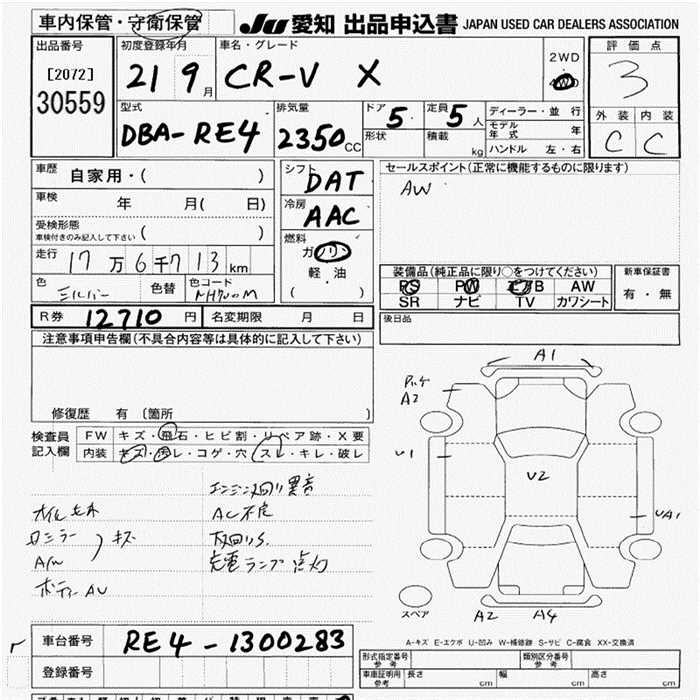 車内保管・守衛保管 JU 愛知 出品申込書 JAPAN USED CAR DEALERS ASSOCIATION
出品番号 初度登録年月 車名・グレード 2WD 評価点
[2072] 21 9月 CR-V X 4WD 3
30559 型式 排気量 ドア 5 定員 5人 ディーラー・並行 外装 内装
DBA-RE4 2350CC 形状 積載 kg モデル年式 年 C C
ハンドル 左・右
車歴 自家用・( ) シフト DAT セールスポイント(正常に機能するものに限ります)
車検 年 月( 日) 冷房 AAC AW
受検形態 車検付きのみ記入して下さい 燃料 ガソリン
走行 17万6千713km 軽・油 装備品(純正品に限り○をつけてください) 新車保証書
色 シルバー 色替 色コード NH700M ( ) PS PW エアB AW 有・無
SR ナビ TV カワシート
R券 12710円 名変期限 月 日 後日品
注意事項申告欄(不具合内容等は具体的に記入して下さい)
A1
A2
修復歴 有 (箇所 )
検査員 記入欄 FW キズ・飛石・ヒビ割・リペア跡・X要
内装 キズ・汚レ・コゲ・穴・スレ・キレ・破レ
U1
U2
UA1
エンジン回り異音
AC不良
ミラー キズ
A/W
充電ランプ点灯
ボディーAU
スペア A2 A4
車台番号 RE4-1300283 A-キズ E-エクボ U-凹み W-補修跡 S-サビ C-腐食 XX-交換済
登録番号 形式指定番号 参考 類別区分番号 参考
車庫証明用 参考 長さ cm 幅 cm 高さ cm